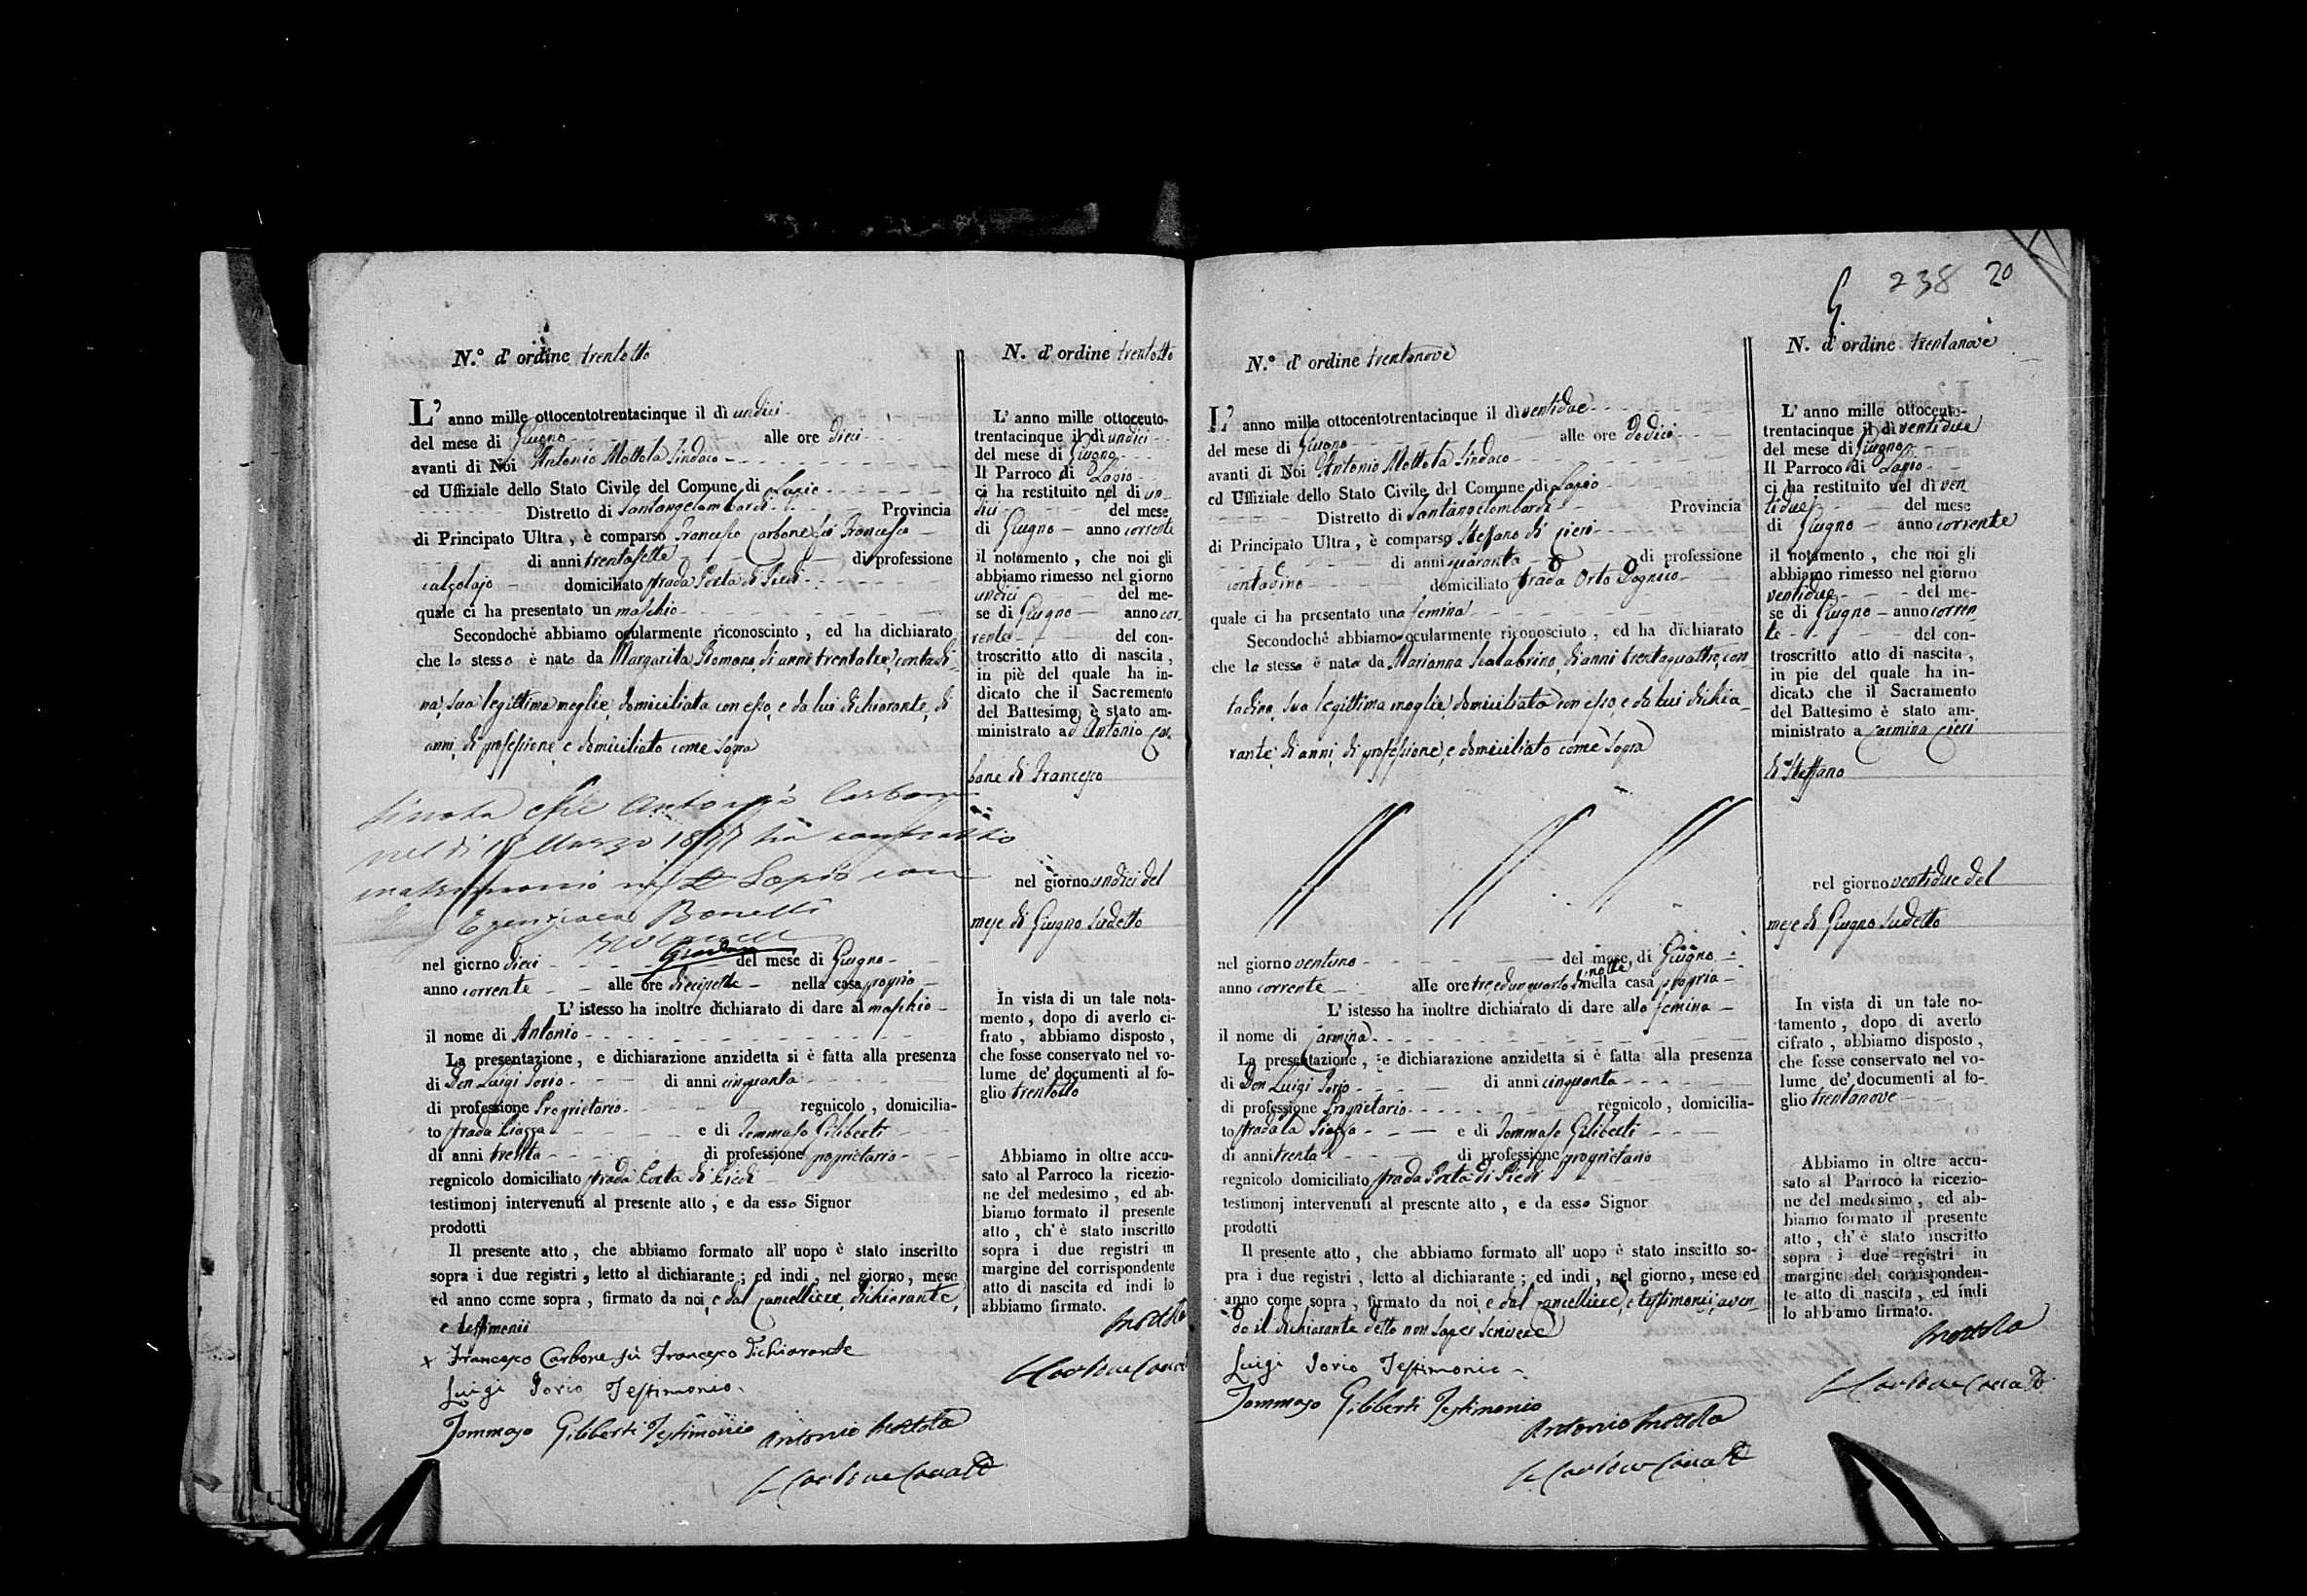 N.° d' ordine trentotto
L' anno mille ottocentotrentacinque il dì undici
del mese di Giugno alle ore dieci
avanti di Noi Antonio Mottola Sindaco
ed Uffiziale dello Stato Civile del Comune di Lapio
Distretto di Santangelombardi Provincia
di Principato Ultra, è comparso Francesco Carbone fù Francesco
di anni trentasette di professione
calzolajo domiciliato strada Porta di Piedi
quale ci ha presentato un maschio
Secondochè abbiamo ocularmente riconosciuto, ed ha dichiarato
che lo stesso è nato da Margarita Romano, di anni trentatre, contadi-
na, sua legittima moglie, domiciliata con esso, e da lui dichiarante, di
anni, di professione, e domiciliato come sopra
Si nota che Antonio Carbone
nel di Marzo ha contratto
matrimonio Lapio con
Bonelli
nel giorno dieci del mese di Giugno
anno corrente alle ore diecisette nella casa propria
L' istesso ha inoltre dichiarato di dare al maschio
il nome di Antonio
La presentazione, e dichiarazione anzidetta si è fatta alla presenza
di Don Luigi Iorio di anni cinquanta
di professione Proprietario regnicolo, domicilia-
to strada Piazza e di Tommaso Giliberti
di anni trenta di professione proprietario
regnicolo domiciliato strada Porta di Piedi
testimonj intervenuti al presente atto, e da esso Signor
prodotti
Il presente atto, che abbiamo formato all' uopo è stato inscritto
sopra i due registri, letto al dichiarante; ed indi, nel giorno, mese
ed anno come sopra, firmato da noi, e dal Cancelliere, dichiarante,
e testimonii
+ Francesco Carbone fù Francesco Dichiarante
Luigi Iorio Testimonio
Tommaso Giliberti Testimonio Antonio Mottola
N. d' ordine trentotto
L' anno mille ottocento-
trentacinque il dì undici
del mese di Giugno
Il Parroco di Lapio
ci ha restituito nel di un-
dici del mese
di Giugno anno corrente
il notamento, che noi gli
abbiamo rimesso nel giorno
undici del me-
se di Giugno anno cor-
rente del con-
troscritto atto di nascita,
in piè del quale ha in-
dicato che il Sacremento
del Battesimo è stato am-
ministrato ad Antonio Car-
bone di Francesco
nel giorno undici del
mese di Giugno sudetto
In vista di un tale nota-
mento, dopo di averlo ci-
frato, abbiamo disposto,
che fosse conservato nel vo-
lume de' documenti al fo-
glio trentotto
Abbiamo in oltre accu-
sato al Parroco la ricezio-
ne del medesimo, ed ab-
biamo formato il presente
atto, ch' è stato inscritto
sopra i due registri in
margine del corrispondente
atto di nascita ed indi lo
abbiamo firmato.
Mottola
238 20
N.° d' ordine trentanove
L' anno mille ottocentotrentacinque il dì ventidue
del mese di Giugno alle ore dodici
avanti di Noi Antonio Mottola Sindaco
ed Uffiziale dello Stato Civile del Comune di Lapio
Distretto di Santangelombardi Provincia
di Principato Ultra, è comparso Steffano di Cieri
di anni quaranta di professione
contadino domiciliato strada Orto Dognuo
quale ci ha presentato una femina
Secondochè abbiamo ocularmente riconosciuto, ed ha dichiarato
che la stessa è nata da Marianna Scalabrino, di anni trentaquattro, con-
tadina, sua legittima moglie, domiciliata con esso, e da lui dichia-
rante, di anni, di professione, e domiciliato come sopra
nel giorno ventuno del mese di Giugno
anno corrente alle ore tre ed un quarto di notte nella casa propria
L' istesso ha inoltre dichiarato di dare alla femina
il nome di Carmina
La presentazione, e dichiarazione anzidetta si è fatta alla presenza
di Don Luigi Iorio di anni cinquanta
di professione Proprietario regnicolo, domicilia-
to strada la Piazza e di Tommaso Giliberti
di anni trenta di professione proprietario
regnicolo domiciliato strada Porta di Piedi
testimonj intervenuti al presente atto, e da esso Signor
prodotti
Il presente atto, che abbiamo formato all' uopo è stato inscitto so-
pra i due registri, letto al dichiarante; ed indi, nel giorno, mese ed
anno come sopra, firmato da noi, e dal Cancelliere, e testimonii, aven-
do il dichiarante detto non saper scrivere
Luigi Iorio Testimonio
Tommaso Giliberti Testimonio
Antonio Mottola
N. d' ordine trentanove
L' anno mille ottocento-
trentacinque il dì ventidue
del mese di Giugno
Il Parroco di Lapio
ci ha restituito nel dì ven-
tidue del mese
di Giugno anno corrente
il notamento, che noi gli
abbiamo rimesso nel giorno
ventidue del me-
se di Giugno anno corren-
te del con-
troscritto atto di nascita,
in pie del quale ha in-
dicato che il Sacramento
del Battesimo è stato am-
ministrato a Carmina Cieri
di Steffano
nel giorno ventidue del
mese di Giugno sudetto
In vista di un tale no-
tamento, dopo di averlo
cifrato, abbiamo disposto,
che fosse conservato nel vo-
lume de' documenti al fo-
glio trentanove
Abbiamo in oltre accu-
sato al Parroco la ricezio-
ne del medesimo, ed ab-
biamo formato il presente
atto, ch' è stato inscritto
sopra i due registri in
margine del corrisponden-
te atto di nascita, ed indi
lo abbiamo firmato.
Mottola